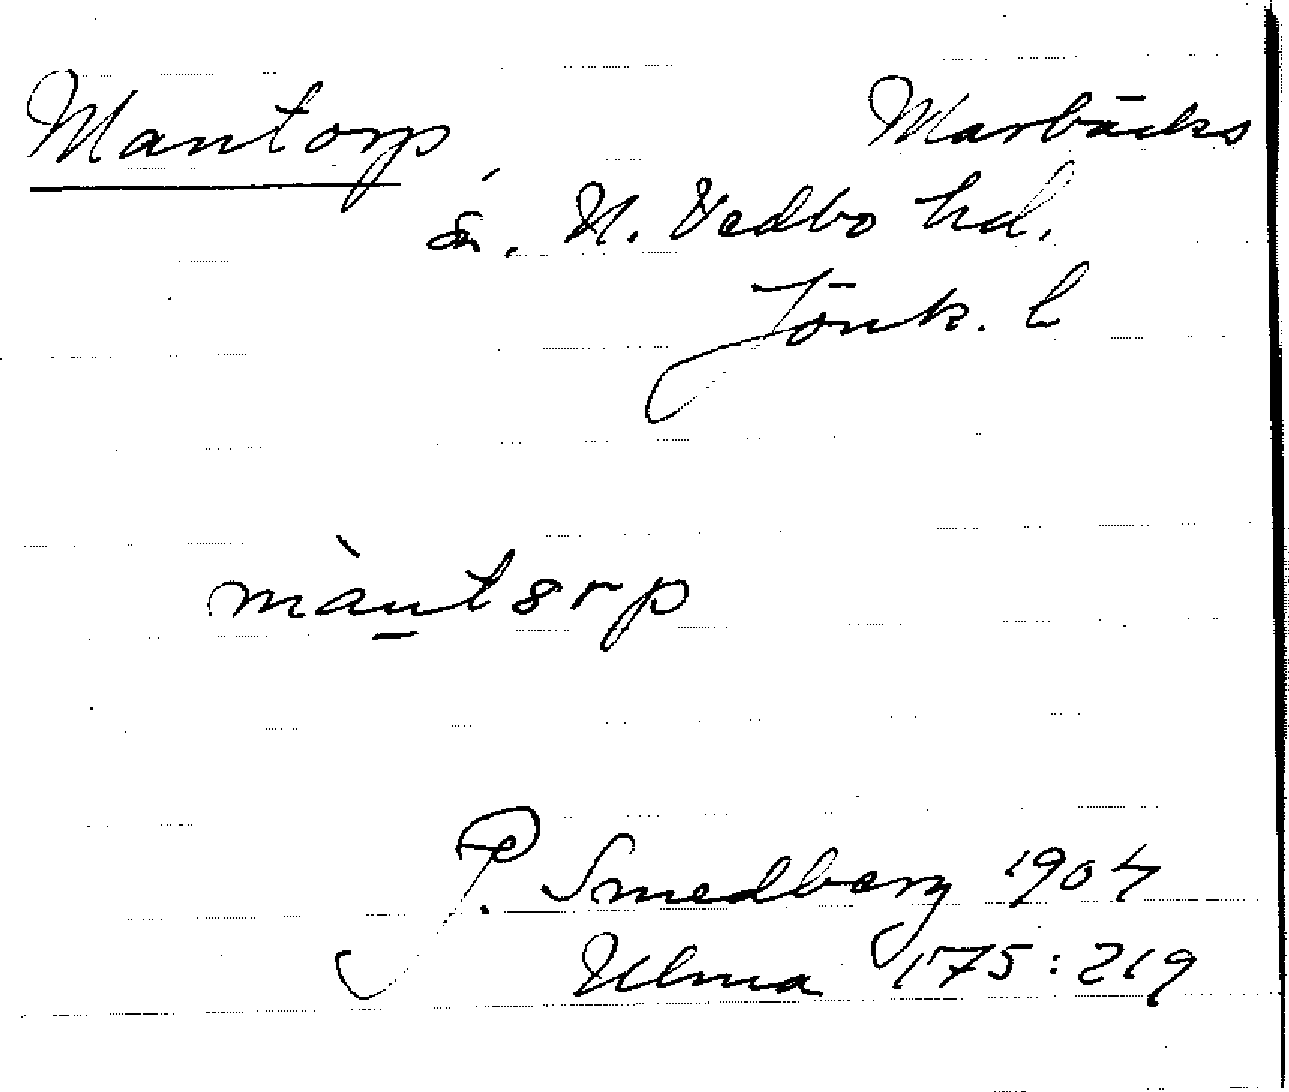 Mantorp Marbäcks
sn. N. Vedbo hd.
Jönk. l
màntorp
P. Smedberg 1904
Ulma 175:219